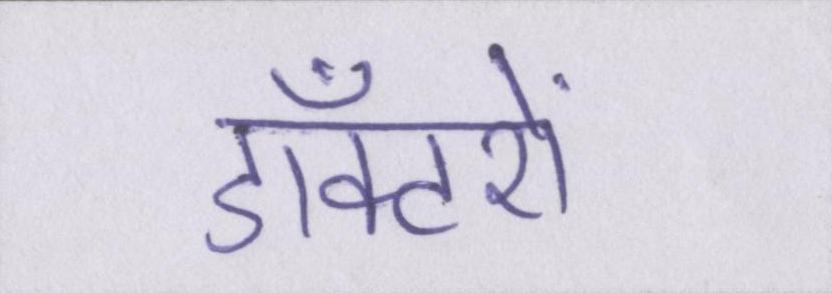 डाँक्टरों